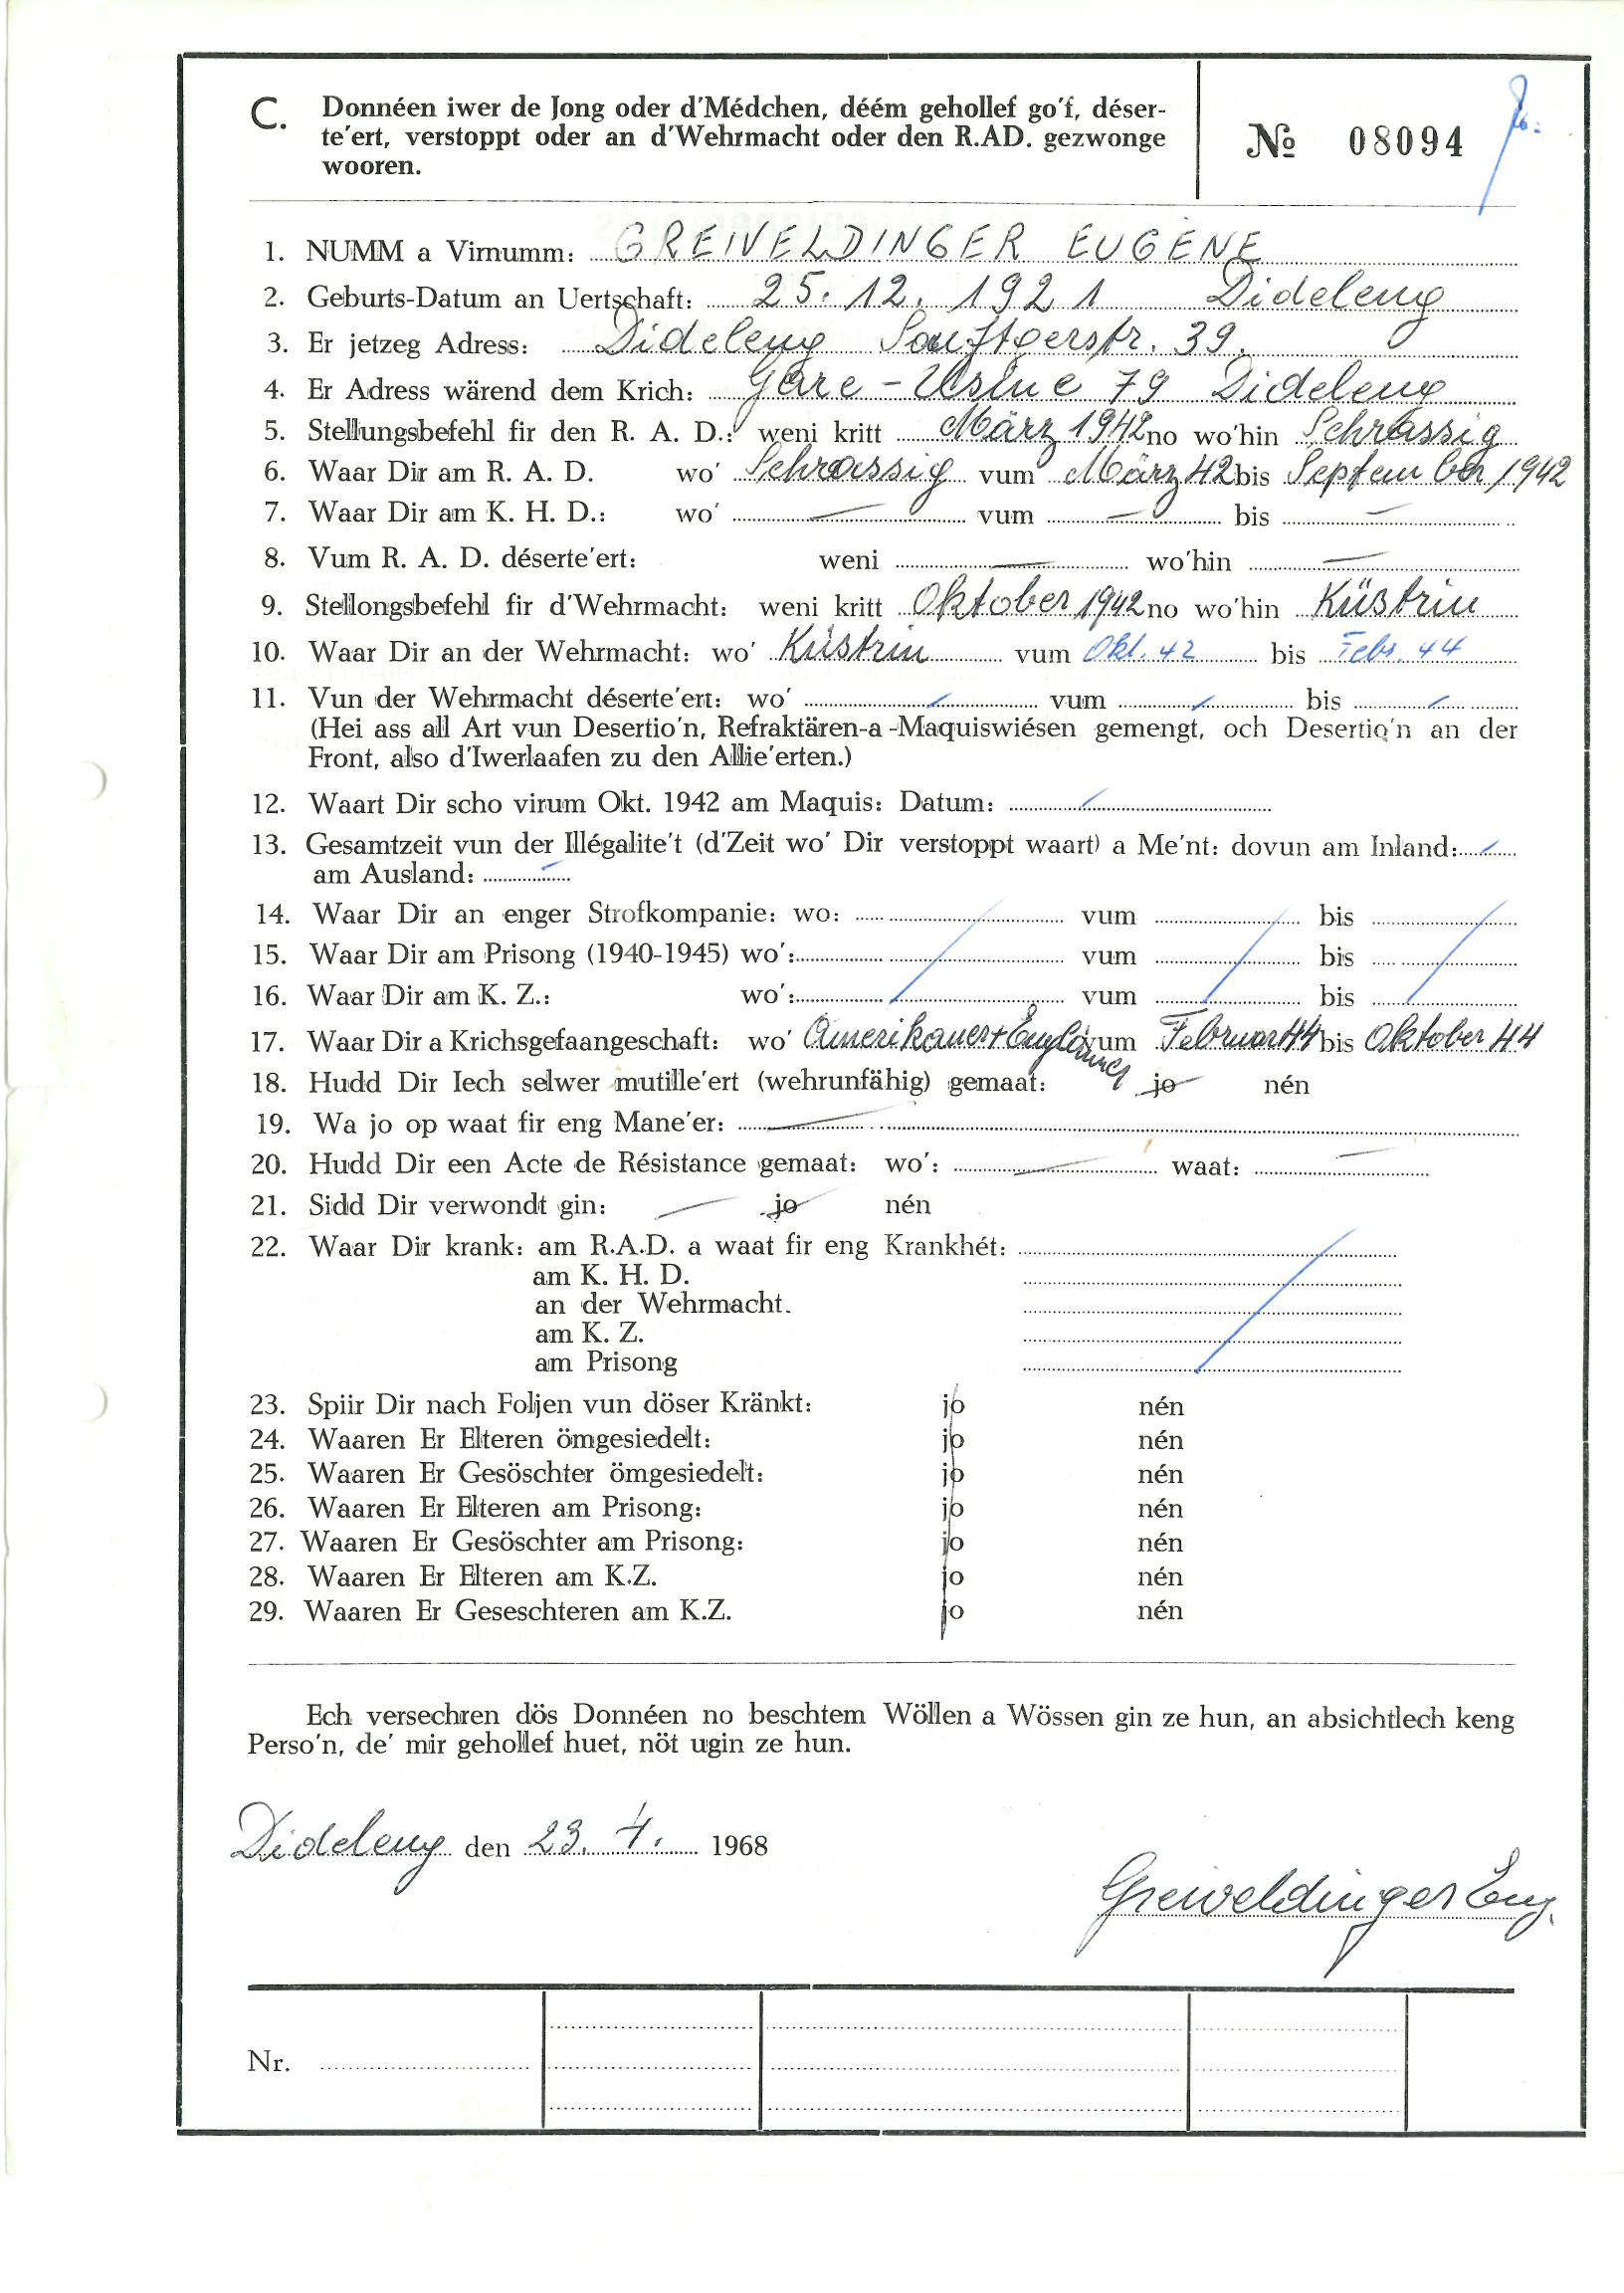 C. Donnéen iwer de Jong oder d'Médchen, déém gehollef go'f, déser-
te'ert, verstoppt oder an d'Wehrmacht oder den R.AD. gezwonge
wooren.
№ 08094
1. NUMM a Virnumm: GREIVELDINGER EUGÈNE
2. Geburts-Datum an Uertschaft: 25. 12. 1921 Dideleng
3. Er jetzeg Adress: Dideleng Souftgerstr. 39.
4. Er Adress wärend dem Krich: Gare - Usine 79 Dideleng
5. Stellungsbefehl fir den R. A. D.: weni kritt März 1942 no wo'hin Schrassig
6. Waar Dir am R. A. D. wo' Schrassig vum März 42 bis September 1942
7. Waar Dir am K. H. D.: wo' — vum — bis —
8. Vum R. A. D. déserte'ert: weni — wo'hin —
9. Stellongsbefehl fir d'Wehrmacht: weni kritt Oktober 1942 no wo'hin Küstrin
10. Waar Dir an der Wehrmacht: wo' Küstrin vum Okt. 42 bis Febr. 44
11. Vun der Wehrmacht déserte'ert: wo' / vum / bis /
(Hei ass all Art vun Desertio'n, Refraktären-a -Maquiswiésen gemengt, och Desertio'n an der
Front, also d'Iwerlaafen zu den Allie'erten.)
12. Waart Dir scho virum Okt. 1942 am Maquis: Datum: /
13. Gesamtzeit vun der Illégalite't (d'Zeit wo' Dir verstoppt waart) a Me'nt: dovun am Inland: /
am Ausland: /
14. Waar Dir an enger Strofkompanie: wo: vum bis
15. Waar Dir am Prisong (1940-1945) wo': vum bis
16. Waar Dir am K. Z.: wo': vum bis
17. Waar Dir a Krichsgefaangeschaft: wo' Amerikaner + Engländer vum Februar 44 bis Oktober 44
18. Hudd Dir Iech selwer mutille'ert (wehrunfähig) gemaat: jo nén
19. Wa jo op waat fir eng Mane'er: —
20. Hudd Dir een Acte de Résistance gemaat: wo': — waat: —
21. Sidd Dir verwondt gin: — jo nén
22. Waar Dir krank: am R.A.D. a waat fir eng Krankhét:
am K. H. D.
an der Wehrmacht.
am K. Z.
am Prisong
23. Spiir Dir nach Foljen vun döser Kränkt: jo nén
24. Waaren Er Elteren ömgesiedelt: jo nén
25. Waaren Er Gesöschter ömgesiedelt: jo nén
26. Waaren Er Elteren am Prisong: jo nén
27. Waaren Er Gesöschter am Prisong: jo nén
28. Waaren Er Elteren am K.Z. jo nén
29. Waaren Er Geseschteren am K.Z. jo nén
Ech versechren dös Donnéen no beschtem Wöllen a Wössen gin ze hun, an absichtlech keng
Perso'n, de' mir gehollef huet, nöt ugin ze hun.
Dideleng den 23. 4. 1968
Greiveldinger Eug.
Nr.